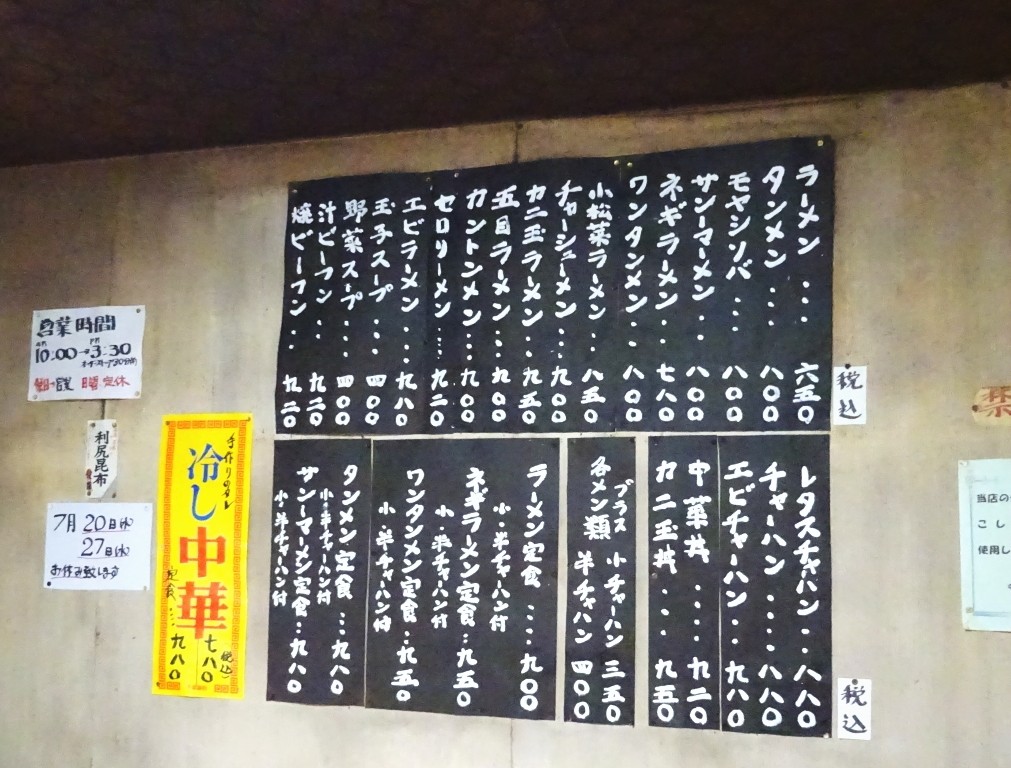 ラーメン・・・六五〇
タンメン・・・八〇〇
モヤシソバ・・・八〇〇
サンマーメン・・八〇〇
ネギラーメン・・七八〇
ワンタンメン・・八〇〇
小松菜ラーメン・・八五〇
チャーシューメン・・・九〇〇
カニ玉ラーメン・・九五〇
五目ラーメン・・・九〇〇
カントンメン・・・九〇〇
セロリーメン・・・・九二〇
エビラーメン・・・九八〇
玉子スープ・・・四〇〇
野菜スープ・・・四〇〇
汁ビーフン・・九二〇
焼ビーフン・・九二〇
税込
レタスチャハン・・八八〇
チャーハン・・・・・八八〇
エビチャーハン・・・九八〇
中菜丼・・・・・九二〇
カニ玉丼・・・・九五〇
プラス 小チャーハン 三五〇
各メン類 半チャハン 四〇〇
ラーメン定食・・・・九〇〇
小・半チャーハン付
ネギラーメン定食・・九五〇
小・半チャーハン付
ワンタンメン定食・・九五〇
小・半チャハン付
タンメン定食・・・九八〇
小・半チャーハン付
サンマーメン定食・・九八〇
小・半チャーハン付
税込
営業時間
AM 10:00→PM 3:30
日曜定休
利尻昆布
7月20日(水)
27日(水)
お休み致します
手作りのタレ
冷し中華
七八〇
(税込)
定食・・・九八〇
禁
当店の
こし
使用し